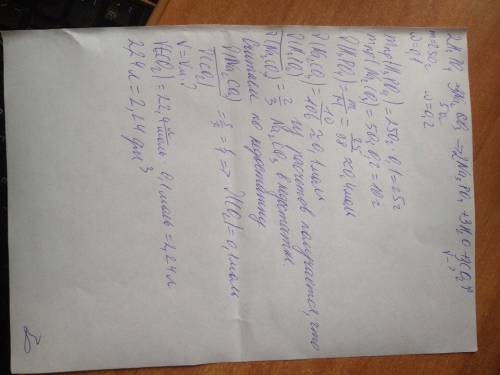 2H₃PO₄ + 3Na₂CO₃ → 2Na₃PO₄ + 3H₂O + 3CO₂↑
m=250г 50г V-?
ω=0,1 ω=0,2
(H₃PO₄) = 250·0,1=25г
(Na₂CO₃) = 50·0,2=10г
ν(H₃PO₄) = m/M = 25/98 ≈ 0,4моль
ν(Na₂CO₃) = 10/106 ≈ 0,1моль
ν(H₃PO₄)/ν(Na₂CO₃) = 2/3 из расчетов получается, что
Na₂CO₃ в недостатке.
Считаем по недостатку
ν(Na₂CO₃)/ν(CO₂) = 3/3 = 1 => ν(CO₂)=0,1моль
V=ν·Vm
V(CO₂) = 22,4 л/моль · 0,1моль = 2,24л
2,24л = 2,24 дм³